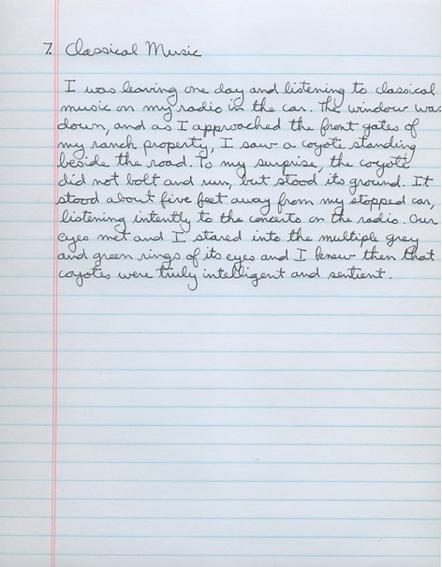 7. Classical Music
I was leaving one day and listening to classical
music on my radio in the car. The window was
down, and as I approached the front gates of
my ranch property, I saw a coyote standing
beside the road. To my surprise, the coyote
did not bolt and run, but stood its ground. It
stood about five feet away from my stopped car,
listening intently to the concerto on the radio. Our
eyes met and I stared into the multiple grey
and green rings of its eyes and I knew then that
coyotes were truly intelligent and sentient.